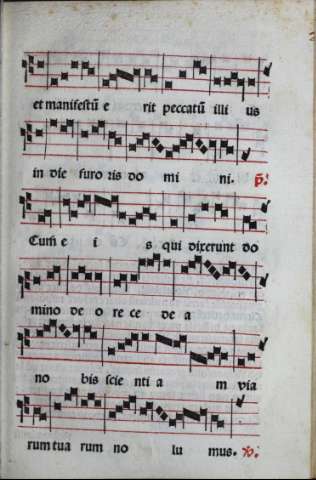 et manifestũ e rit peccatũ illi us
in die furo ris do mi ni. p̃.
Cum̃ e i s qui dixerunt do
mino de o re ce de a
no bis scie nti a m via
rum tua rum no lu mus. ℣.